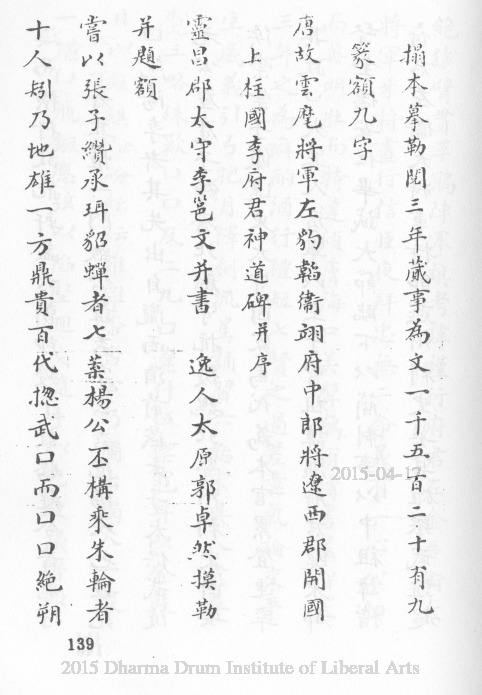 搨本摹勒閱三年蕆事為文一千五百二十有九
篆額九字
唐故雲麾將軍左豹韜衞翊府中郎將遼西郡開國
上柱國李府君神道碑并序
靈昌郡太守李邕文并書 逸人太原郭卓然摸勒
并題額
嘗以張子纘承珥貂蟬者七葉楊公丕構乘朱輪者
十人刱乃地雄一方鼎貴百代揔武口而口口絶朔
139
2015-04-17
2015 Dharma Drum Institute of Liberal Arts